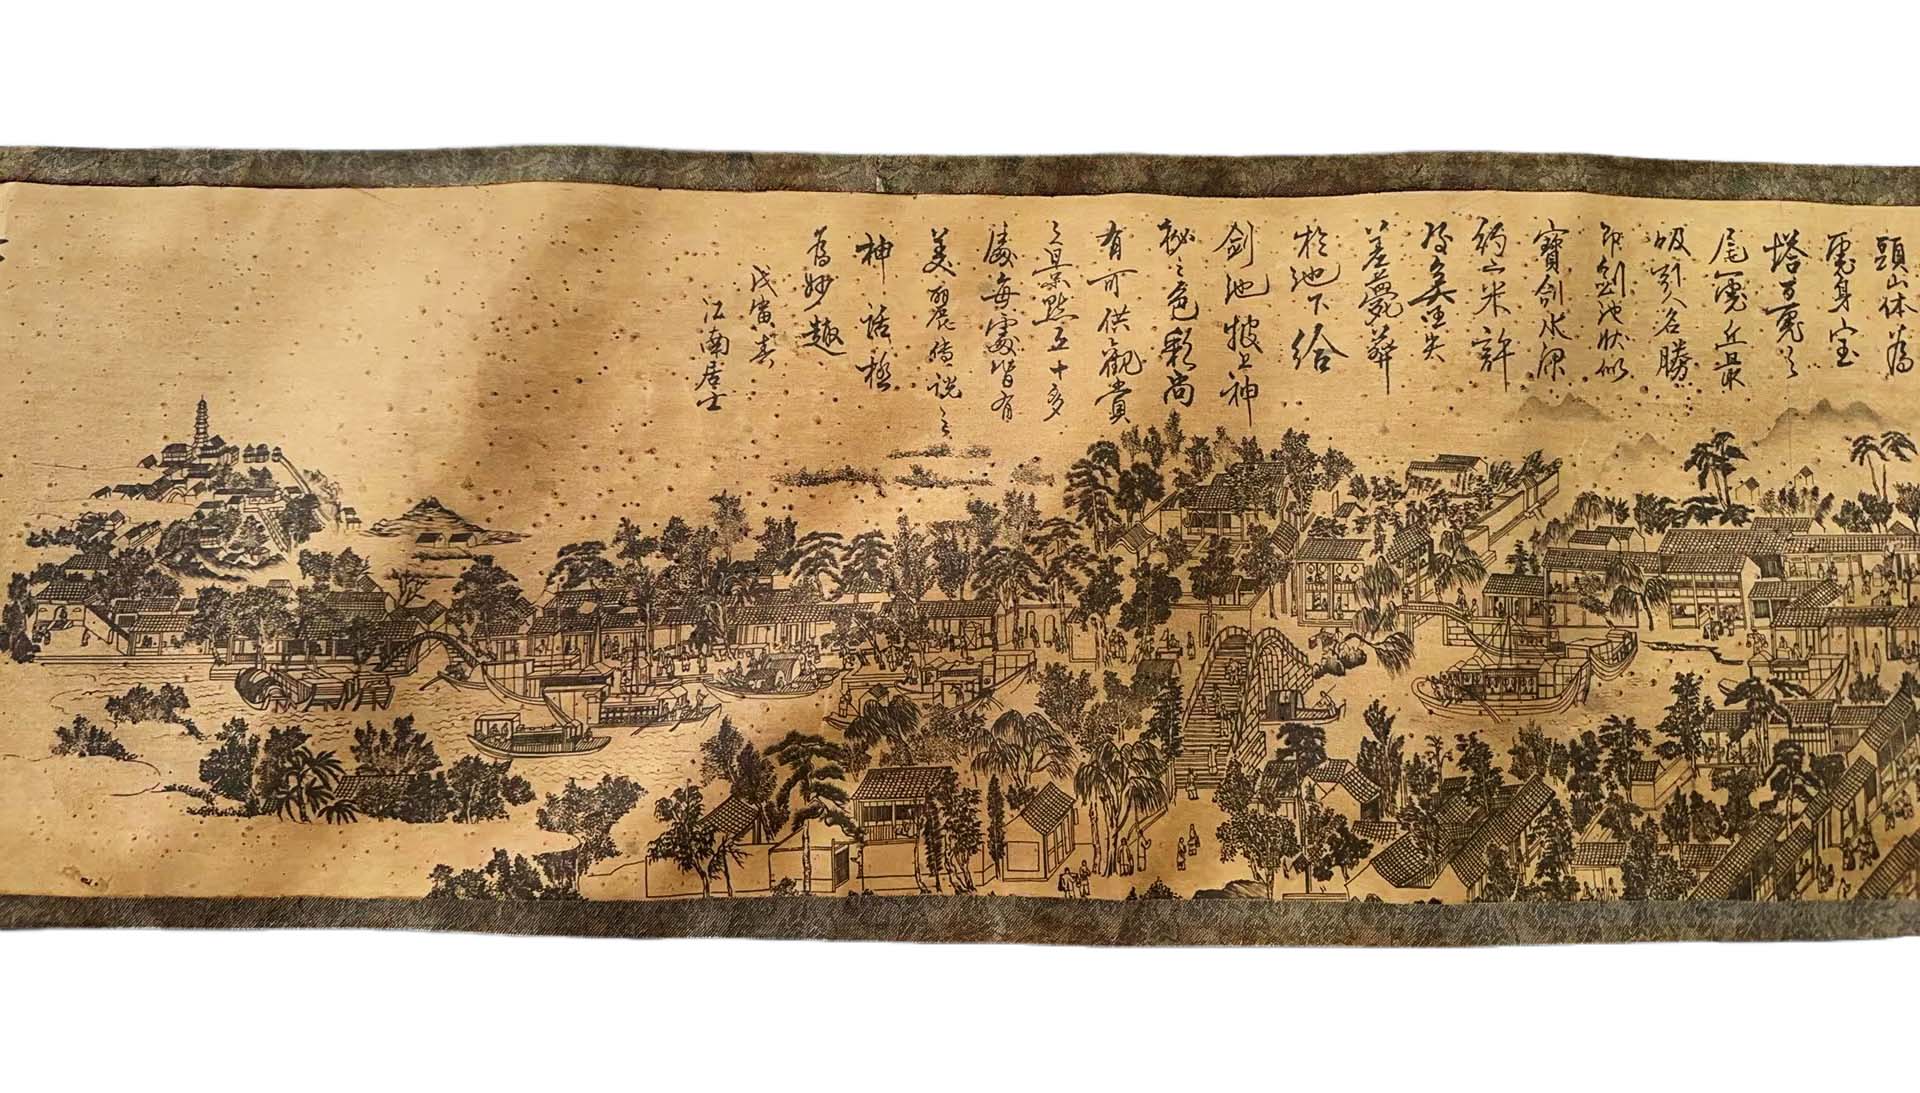 頭山体為
虎身宝
塔為虎之
尾虎丘最
吸引人名勝
即劍池狀似
寶劍水深
約六米許
吳王夫
差葬
於池下給
劍池披上神
秘之色彩尚
有可供觀賞
之景點五十多
處每處皆有
美麗傳説之
神話極
為妙趣
戊寅春
江南居士